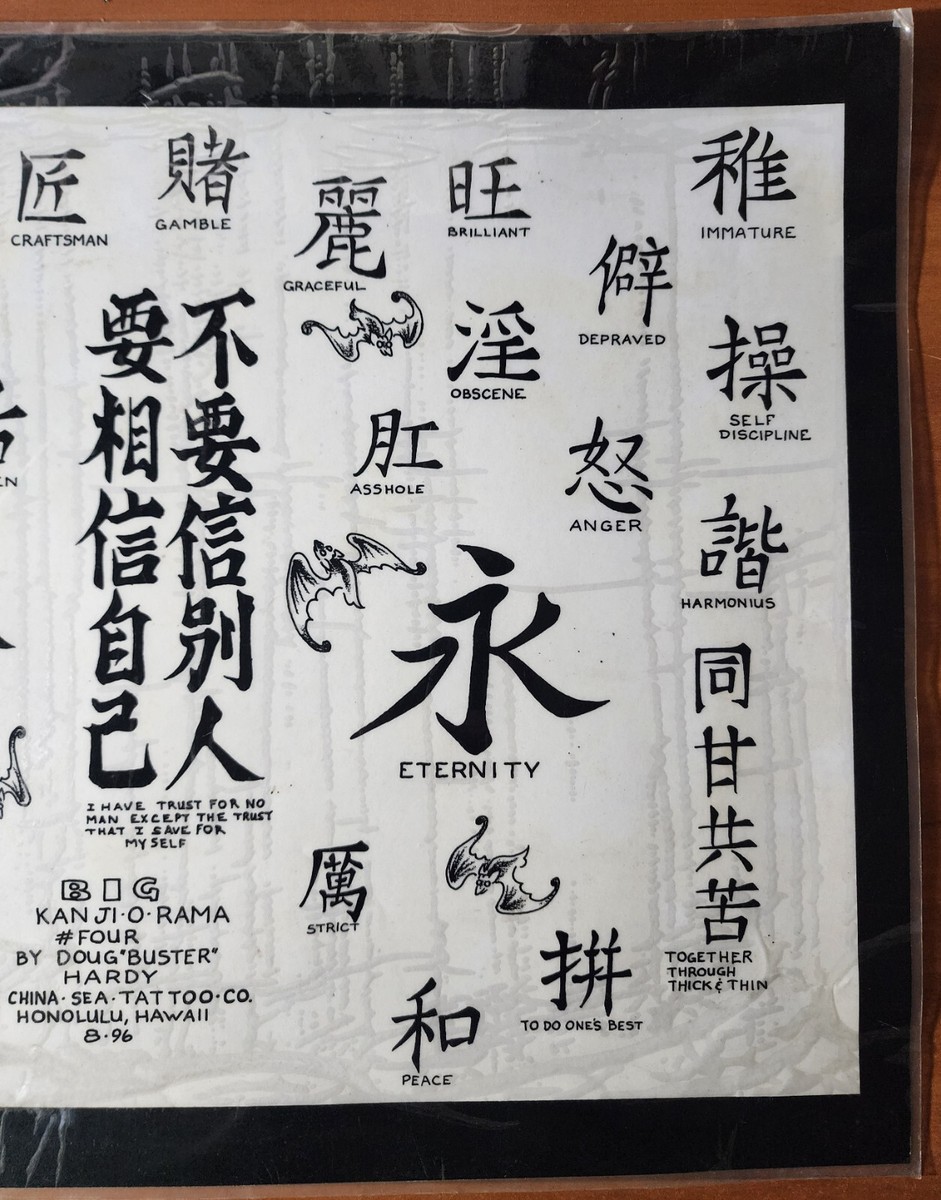 匠
CRAFTSMAN
賭
GAMBLE
麗
GRACEFUL
旺
BRILLIANT
稚
IMMATURE
僻
DEPRAVED
淫
OBSCENE
操
SELF
DISCIPLINE
肛
ASSHOLE
怒
ANGER
諧
HARMONIUS
不要信別人
要相信自己
I HAVE TRUST FOR NO
MAN EXCEPT THE TRUST
THAT I SAVE FOR
MY SELF
永
ETERNITY
同甘共苦
TOGETHER
THROUGH
THICK & THIN
厲
STRICT
拼
TO DO ONE'S BEST
和
PEACE
BIG
KANJI·O·RAMA
#FOUR
BY DOUG "BUSTER"
HARDY
CHINA·SEA·TATTOO·CO.
HONOLULU, HAWAII
8·96